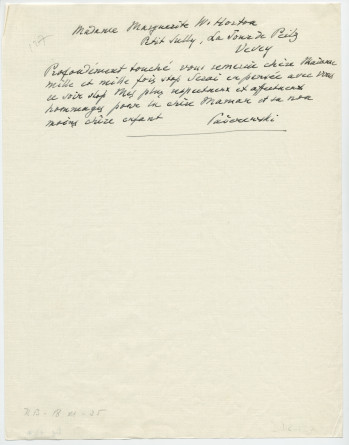 Madame Marguerite W. Horton
Petit Sully, La Tour de Peilz
Vevey
Profondément touché vous remercie chère Madame
mille et mille fois stop Serai en pensée avec vous
ce soir stop Mes plus respectueux et affectueux
hommages pour la chère Maman et sa non
moins chère enfant Paderewski